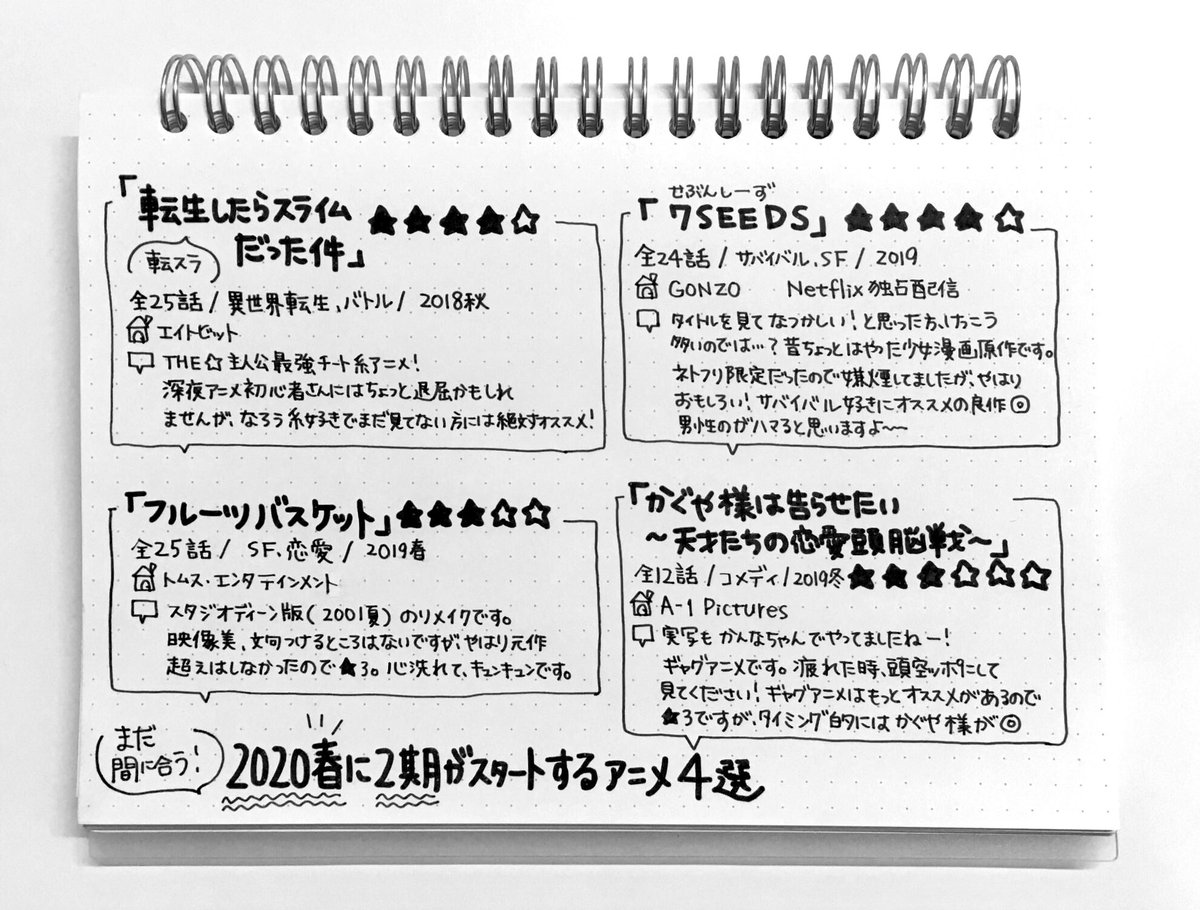 「転生したらスライム
だった件」 ★★★★☆
転スラ
全25話 / 異世界転生、バトル / 2018秋
エイトビット
THE☆主人公最強チート系アニメ！
深夜アニメ初心者さんにはちょっと退屈かもしれ
ませんが、なろう系好きでまだ見てない方には絶対オススメ！
せぶんしーず
「7SEEDS」 ★★★★☆
全24話 / サバイバル、SF / 2019
GONZO Netflix独占配信
タイトルを見てなつかしい！と思った方、けっこう
多いのでは…？昔ちょっとはやった少女漫画原作です。
ネトフリ限定だったので嫌煙してましたが、やはり
おもしろい！サバイバル好きにオススメの良作◎
男性のがハマると思いますよ〜〜
「フルーツバスケット」★★★☆☆
全25話 / SF、恋愛 / 2019春
トムス・エンタテインメント
スタジオディーン版(2001夏)のリメイクです。
映像美、文句つけるところはないですが、やはり元作
超えはしなかったので★3。心洗れて、キュンキュンです。
「かぐや様は告らせたい
〜天才たちの恋愛頭脳戦〜」
全12話 / コメディ / 2019冬 ★★★☆☆☆
A-1 Pictures
実写もかんなちゃんでやってましたねー！
ギャグアニメです。疲れた時、頭空ッポにして
見てください！ギャグアニメはもっとオススメがあるので
★3ですが、タイミング的にはかぐや様が◎
まだ
間に合う！
2020春に2期がスタートするアニメ4選